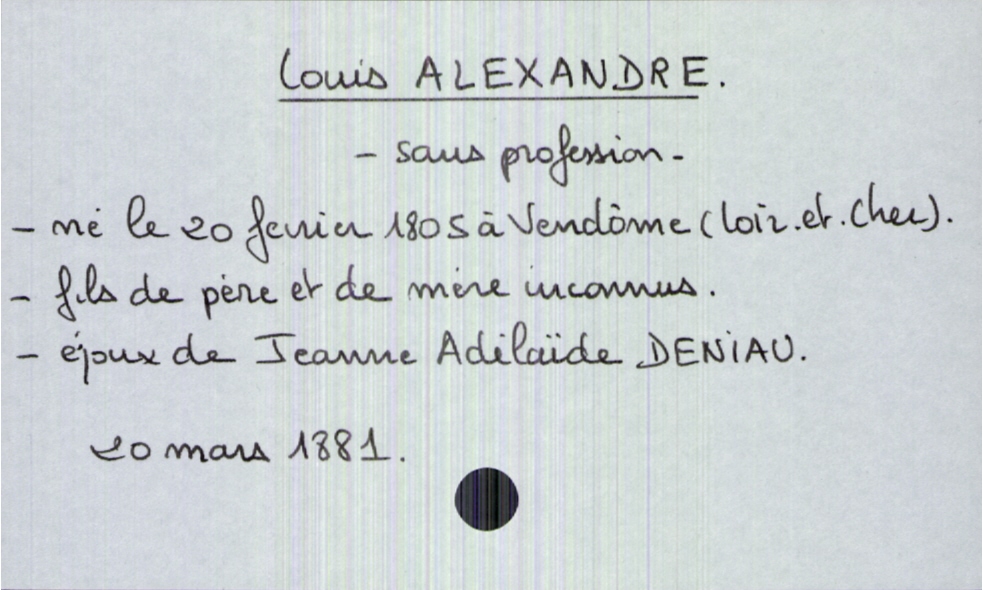 Louis ALEXANDRE.
- sans profession -
- né le 20 fevrier 1805 à Vendôme (Loir.et.Cher).
- fils de père et de mère inconnus.
- époux de Jeanne Adélaïde DENIAU.
20 mars 1881.